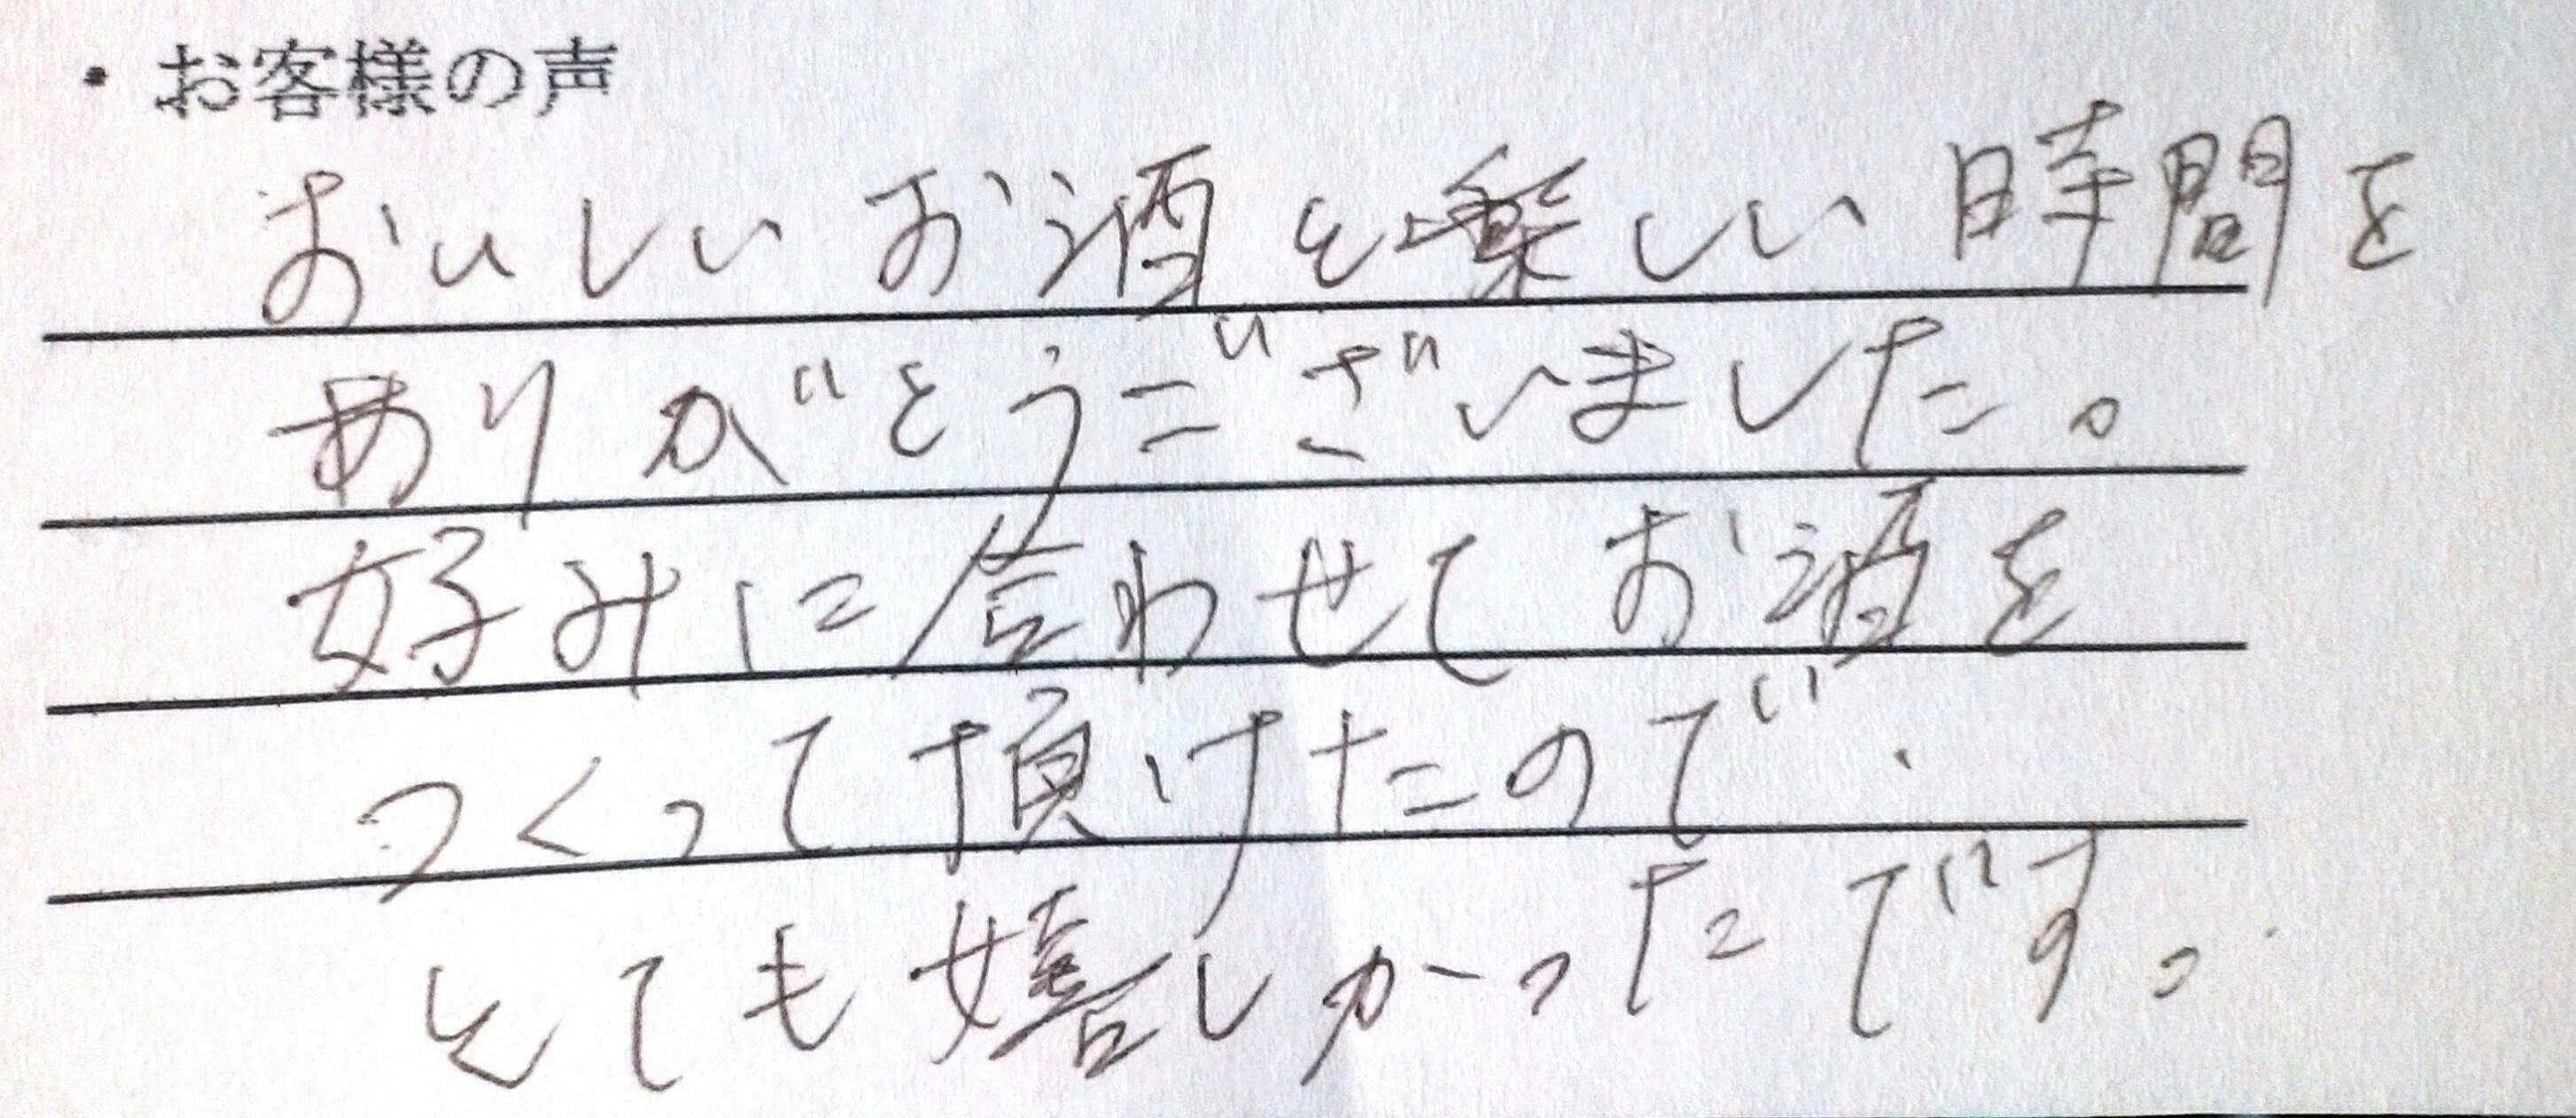 ・お客様の声
おいしいお酒と楽しい時間を
ありがとうございました。
好みに合わせてお酒を
つくって頂けたので、
とても嬉しかったです。